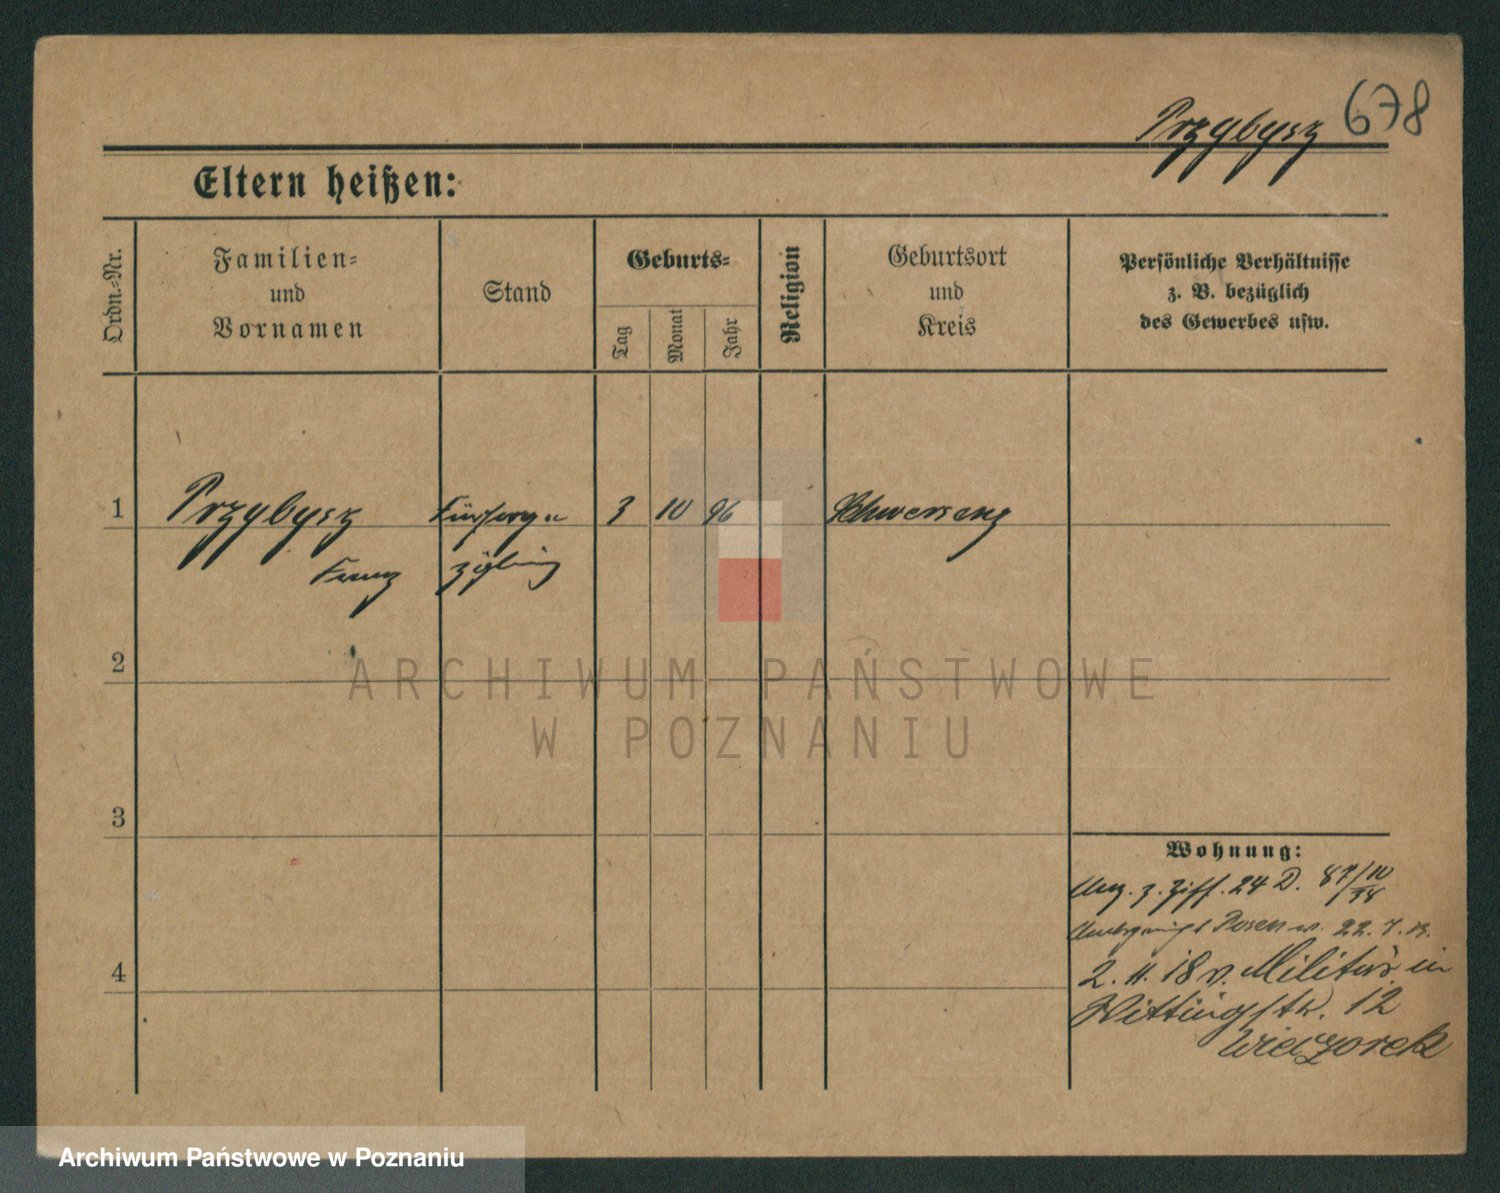 678
Przybysz
Eltern heißen:
Ordn.-Nr.
Familien-
und
Vornamen
Stand
Geburts-
Tag
Monat
Jahr
Religion
Geburtsort
und
Kreis
Persönliche Verhältnisse
z. B. bezüglich
des Gewerbes usw.
1 Przybysz Fürsorge 3 10 96 Schwersenz
Franz zögling
2
3
4
Wohnung:
z. Ziff. 24 D. 87/10
Posen 22. 7.
2. 11. 18 v. Militär in
12
Wieczorek
ARCHIWUM PAŃSTWOWE
W POZNANIU
Archiwum Państwowe w Poznaniu